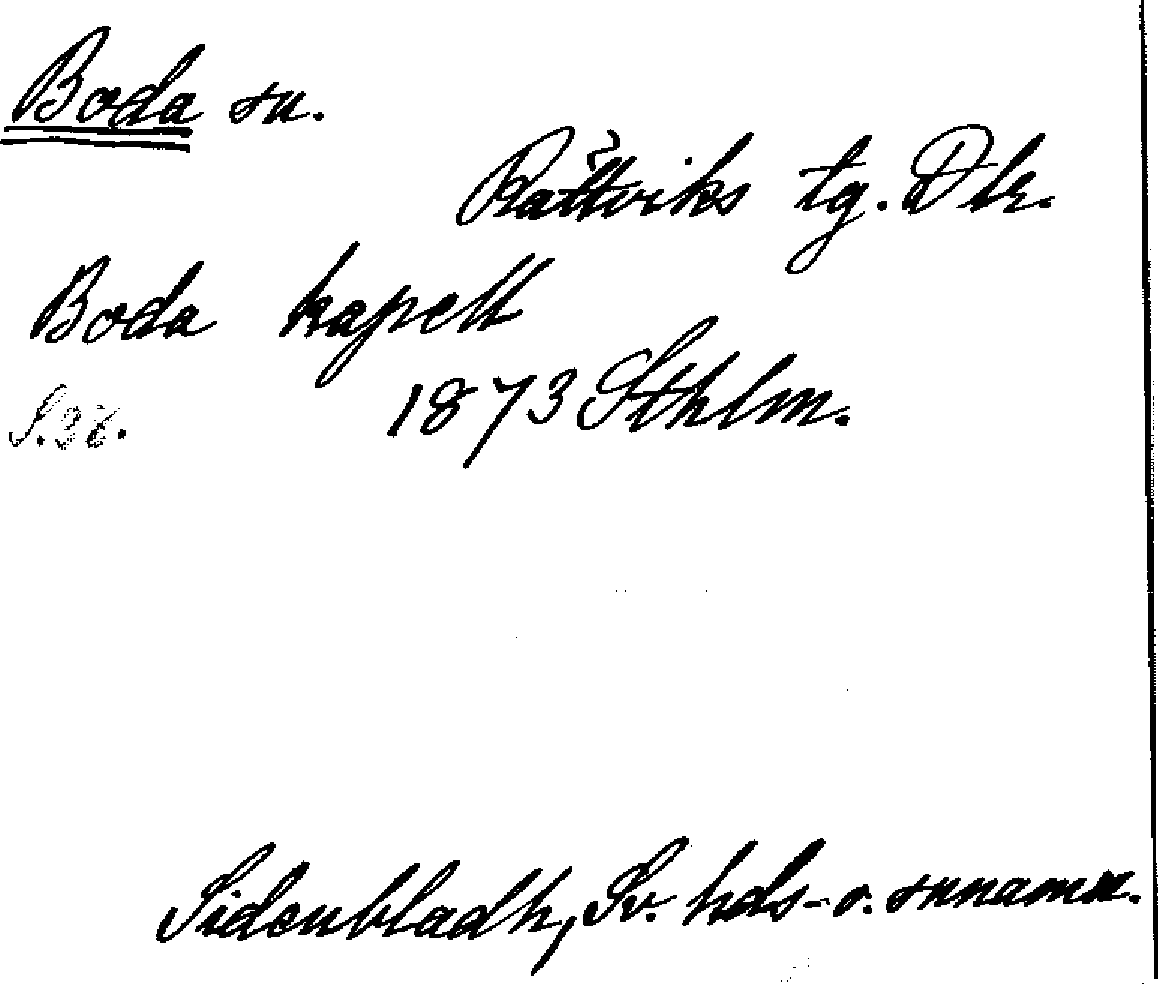 Boda sn.
Rättviks tg. Dlr.
Boda kapell
1873 Sthlm.
S. 36.
Sidenbladh, Sv. hds- o. snnamn.